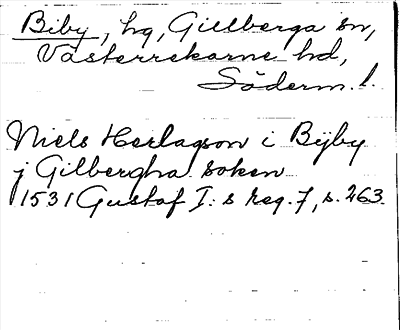 Biby, hg, Gillberga sn,
Västerrekarne hd,
Söderm. l.
Niels Herlagson i Bÿby
j Gilbergha soken
1531 Gustaf I:s reg. 7, s. 263.